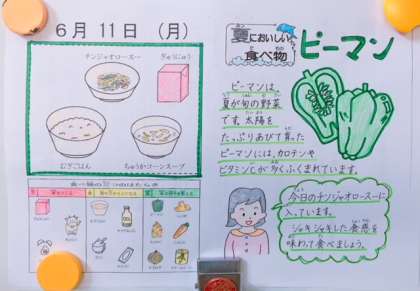 6月11日（月）
チンジャオロースー
ぎゅうにゅう
むぎごはん
ちゅうかコーンスープ
夏においしい
食べ物
ピーマン
ピーマンは、
夏が旬の野菜
です。太陽を
たっぷりあびて育った
ピーマンには、カロテンや
ビタミンCが多くふくまれています。
今日のチンジャオロースーに
入っています。
シャキシャキした食感を
味わって食べましょう。